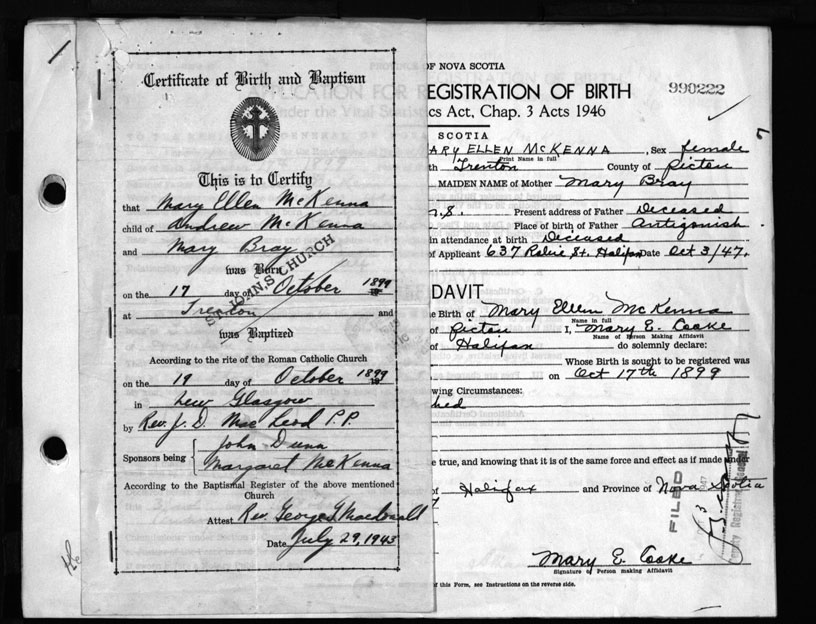 Certificate of Birth and Baptism
This is to Certify
that Mary Ellen McKenna
child of Andrew McKenna
and Mary Bray
was Born
on the 17 day of October 1899
at Trenton and
ST. JOHN'S CHURCH
was Baptized
According to the rite of the Roman Catholic Church
on the 19 day of October 1899
in New Glasgow
by Rev. J. D. MacLeod P.P.
Sponsors being John Dunn
Margaret McKenna
According to the Baptismal Register of the above mentioned
Church
Attest Rev. George Macdonald
Date July 29, 1943
OF NOVA SCOTIA
REGISTRATION OF BIRTH
990222
cs Act, Chap. 3 Acts 1946
SCOTIA
ARY ELLEN MCKENNA, Sex female
Print Name in full
th Trenton County of Pictou
MAIDEN NAME of Mother Mary Bray
N.S. Present address of Father Deceased
Place of birth of Father Antigonish
in attendance at birth Deceased
of Applicant 637 Robie St. Halifax Date Oct 3/47.
DAVIT
he Birth of Mary Ellen McKenna
Name in full
of Pictou I, Mary E. Cooke
Name of Person Making Affidavit
of Halifax do solemnly declare:
Whose Birth is sought to be registered was
on Oct 17th 1899
wing Circumstances:
hed
e true, and knowing that it is of the same force and effect as if made under
of Halifax and Province of Nova Scotia
FILED
Deputy Registrar General
Mary E. Cooke
Signature of Person making Affidavit
of this Form, see Instructions on the reverse side.